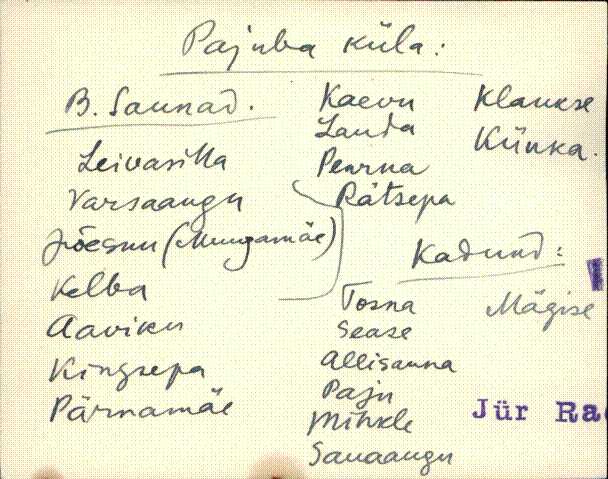 Pajuba küla:
B. Saunad.
Leivasilla
Varsaangu
Jõesuu (Mungamäe)
Kelba
Aaviku
Kingsepa
Pärnamäe
Kaevu
Lauda
Peurna
Rätsepa
Tosna
Sease
Allisauna
Paju
Mihkle
Sauaangu
Klaukse
Künka.
Kadund:
Mägise
Jür Ra